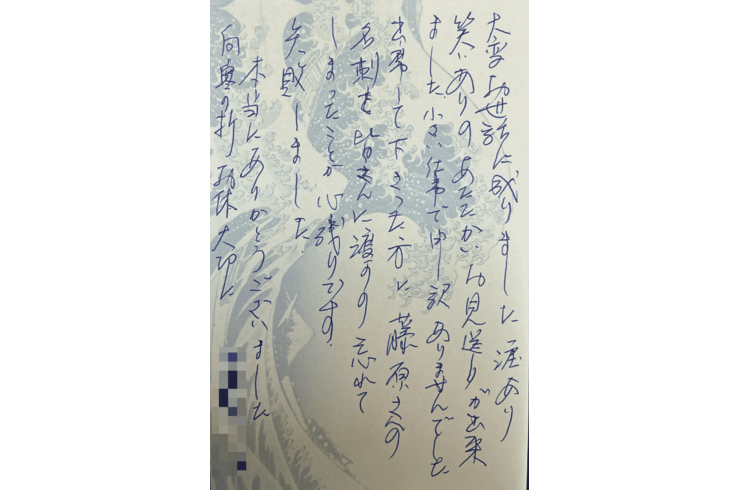 大変お世話に成りました 涙あり
笑いありの あたたかいお見送りが出来
ました 小さい仕事で申し訳ありませんでした
出席して下さった方に 藤原さんの
名刺を皆さんに渡すの忘れて
しまったことが心残りです。
失敗しました。
本当にありがとうございました
向寒の折 お体大切に